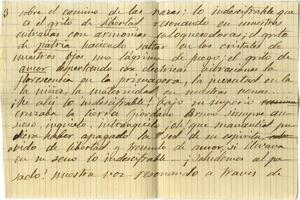 3 sobre el camino de las razas: lo indescifrable que
es el grito de libertad resonando en nuestras
entrañas con armonías enloquecedoras; el grito
de patria haciendo saltar en los cristales de
nuestros ojos una lágrima de fuego; el grito de
amor despertando con eléctricas vibraciones de
la primavera, la juventud en la
la niñez, la maternidad nuestras novias.
¡He ahí lo indescifrable! Bajo su imperio
cruzaba la tierra Giordano Bruno siempre an-
sioso, inquieto, intranquilo; ¡oh! que manantial
haber apagado la sed de su espíritu
ávido de libertad y trémulo de amor, si llevaba
en su seno lo indescifrable. ¡Saludemos al pa-
sado! nuestra voz resonando a través de